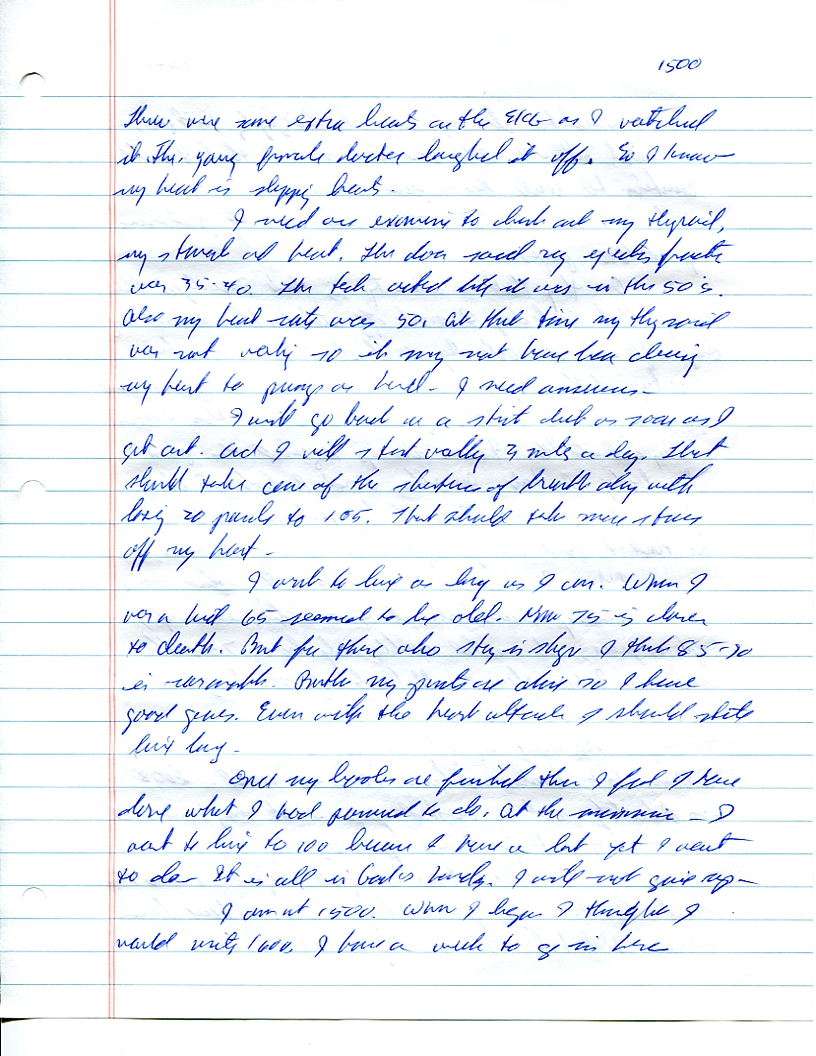 1500
There were some extra beats on the EKG as I watched
it. The young female doctor laughed it off. So I know
my heart is skipping beats.
I need one examine to check out my thyroid,
my stomach and heart. The door said my ejection fraction
was 35-40. The tech acted like it was in the 50's.
Also my heart rate was 50. At that time my thyroid
was not working so it may not have been
my heart to pump as hard - I need answers -
I will go back on a strict diet as soon as I
get out. And I will start walking 3 miles a day. That
should take care of the shortness of breath along with
losing 20 pounds to 185. That should take more stress
off my heart -
I want to live as long as I can. When I
was a kid 65 seemed to be old. Now 75 is closer
to death. But for those who stay in shape I think 85-90
is reasonable. Both my parents are alive so I have
good genes. Even with the heart attack I should still
live long -
Once my books are finished then I feel I have
done what I had planned to do. At the - I
want to live to 100 because I have a lot yet I want
to do - It is all in God's hands. I will not give up -
I am at 1500. When I began I thought I
would write 1000. I have a week to go in here